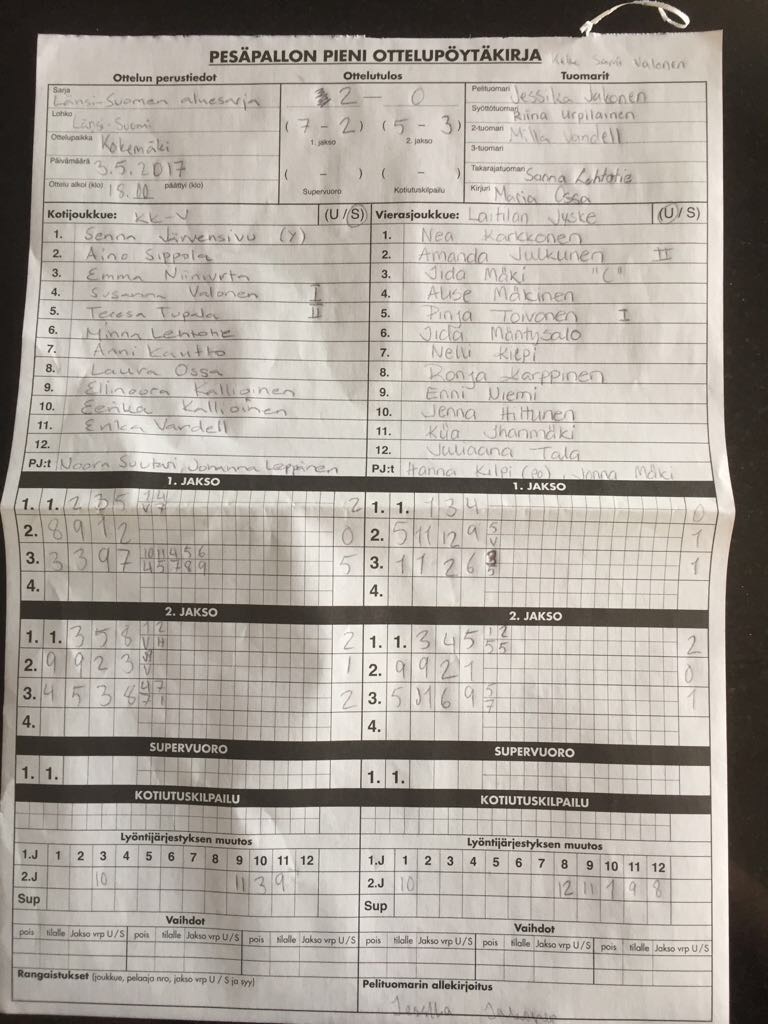 PESÄPALLON PIENI OTTELUPÖYTÄKIRJA
Valonen
Ottelun perustiedot
Ottelutulos
Tuomarit
Sarja
Länsi-Suomen aluesarja
Lohko
Länsi-Suomi
Ottelupaikka Kokemäki
Päivämäärä 3.5.2017
Ottelu alkoi (klo) 18.00 päättyi (klo)
2 - 0
(7 - 2) (5 - 3)
1. jakso 2. jakso
( - ) ( - )
Supervuoro Kotiutuskilpailu
Pelituomari Jessika Jakonen
Syöttötuomari Riina Urpilainen
2-tuomari Milla Vandell
3-tuomari
Takarajatuoman Sanna
Kirjuri Maria Ossa
Kotijoukkue: KK-V (U / S)
1. Senna Järvensivu (Y)
2. Aino Sippola
3. Emma
4. Susanna Valonen I
5. Teresa Tupala II
6. Minna
7. Anni Kautto
8. Laura Ossa
9. Elinoora Kallioinen
10. Eerika Kallioinen
11. Erika Vardell
12.
PJ:t Noora Johanna Leppinen
Vierasjoukkue: Laitilan Jyske (U / S)
1. Nea Karkkonen
2. Amanda Julkunen II
3. Iida Mäki "C"
4. Alise Mäkinen
5. Pinja Toivonen I
6. Iida Mäntysalo
7. Nelli Kilpi
8. Ronja Karppinen
9. Enni Niemi
10. Jenna Hiltunen
11. Kiia Ihanmäki
12. Juliaana Tala
PJ:t Hanna Kilpi (PJ), Janna Mäki
1. JAKSO
1. 1. 2 3 5 2
2. 8 9 1 2 0
3. 3 3 9 7 10 11 4 5 6 5
4 5 7 8 9
4.
1. JAKSO
1. 1. 1 3 4 0
2. 5 11 12 9 5 1
V
3. 1 1 2 6 3 1
5
4.
2. JAKSO
1. 1. 3 5 8 1 2 2
V H
2. 9 9 2 3 1
V
3. 4 5 3 8 4 7 2
7 1
4.
2. JAKSO
1. 1. 3 4 5 1 2 2
5 5
2. 9 9 2 1 0
3. 5 11 6 9 5 1
7
4.
SUPERVUORO
1. 1.
SUPERVUORO
1. 1.
KOTIUTUSKILPAILU
KOTIUTUSKILPAILU
Lyöntijärjestyksen muutos
1.J 1 2 3 4 5 6 7 8 9 10 11 12
2.J 10 11 3 9
Sup
Lyöntijärjestyksen muutos
1.J 1 2 3 4 5 6 7 8 9 10 11 12
2.J 10 12 11 1 9 8
Sup
Vaihdot
pois tilalle Jakso vrp U / S pois tilalle Jakso vrp U / S pois tilalle Jakso vrp U / S
Vaihdot
pois tilalle Jakso vrp U / S pois tilalle Jakso vrp U / S pois tilalle Jakso vrp U / S
Rangaistukset (joukkue, pelaaja nro, jakso vrp U / S ja syy)
Pelituomarin allekirjoitus